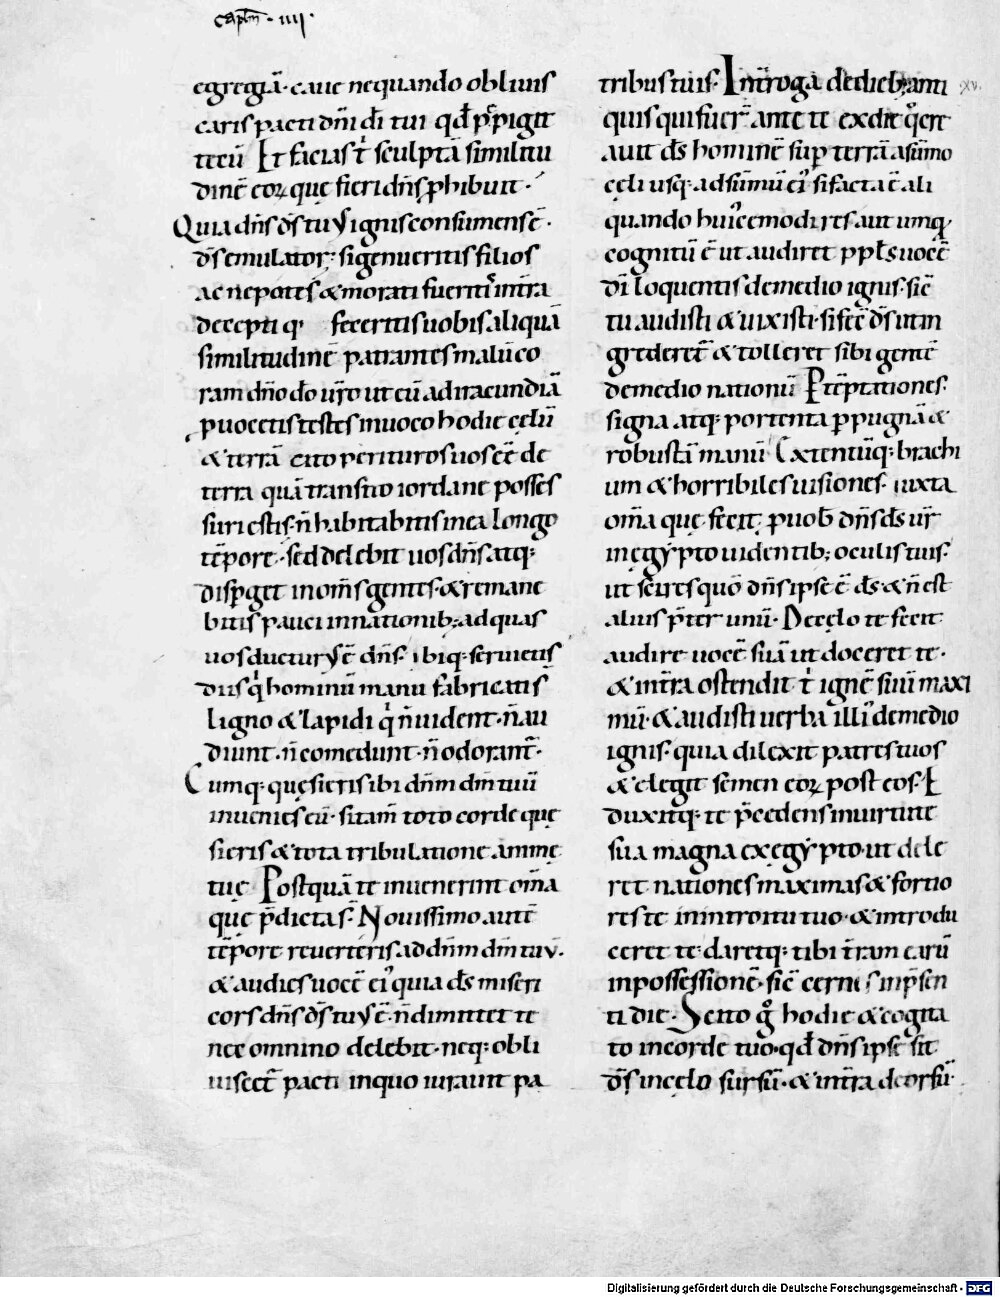 capłm · iiii ·
egregiā · caue nequando obliuis
caris pacti dn̄i dī tui qđ pepigit
tecū Et facias tibi sculptā similitu
dinē eoꝝ que fieri dn̄s ꝓhibuit ·
Quia dn̄s ds̄ tuus ignis consumens ē ·
ds̄ emulator · si genueritis filios
ac nepotes & morati fueritis in tr̄a
decepti q; feceritis uobis aliquā
similitudinē patrantes malū co
ram dn̄o dō ur̄o ut eū ad iracundiā
ꝓuocetis testes inuoco hodie cęlū
& terrā cito perituros uos eē de
terra quā transito iordane posses
suri estis · n̄ habitabitis in ea longo
tēpore · sed delebit uos dn̄s atq;
disꝑget in om̄s gentes · & remane
bitis pauci in nationib; ad quas
uos ducturus ē dn̄s · ibiq; seruietis
diis qͥ hominū manu fabricati s̄
ligno & lapidi qͥ n̄ uident · n̄ au
diunt · n̄ comedunt · n̄ odorant ·
Cumq; quęsieris ibi dn̄m dm̄ tuū
inuenies eū · si tam̄ toto corde que
sieris & tota tribulatione anime
tuę Postquā te inuenerint om̄a
que p̄dicta s̄ · Nouissimo autē
tēpore reuerteris ad dn̄m dm̄ tuū ·
& audies uocē eius quia ds̄ miseri
cors dn̄s ds̄ tuus ē · n̄ dimittet te
nec omnino delebit · neq; obli
uiscet̄ pacti in quo iurauit pa
tribus tuis · Int̄roga de dieb; anti xv.
quis qui fuer̄ ante te ex die q̊ cre
auit ds̄ hominē suꝑ terrā a sūmo
cęli usq; ad sūmū eius si facta ē ali
quando huiuscemodi res aut umq̄
cognitū ē ut audiret ppl̄s uocē
dī loquentis de medio ignis · sic̄
tu audisti & uixisti · si fecit ds̄ ut in
grederet̄ & tolleret sibi gentē
de medio nationū Ꝑ tēptationes
signa atq; portenta ꝑ pugnā &
robustā manū Extentūq; brachi
um & horribiles uisiones · iuxta
om̄a que fecit ꝓ uob̄ dn̄s ds̄ ur̄
in egypto uidentib; oculis tuis ·
ut scires quō dn̄s ipse ē ds̄ & n̄ est
alius p̄ter unū · De cęlo te fecit
audire uocē suā ut doceret te ·
& in tr̄a ostendit tibi ignē suū maxi
mū · & audisti uerba illius de medio
ignis · quia dilexit patres tuos
& elegit semen eoꝝ post eos · E
duxitq; te p̄cedens in uirtute
sua magna ex egypto · ut dele
ret nationes maximas & fortio
res te in introitu tuo · & introdu
ceret te · daretq; tibi tr̄am earū
in possessionē · sic̄ cernis in p̄sen
ti die · Scito g̊ hodie & cogita
to in corde tuo · qđ dn̄s ipse sit
ds̄ in cęlo sursū · & in tr̄a deorsū
Digitalisierung gefördert durch die Deutsche Forschungsgemeinschaft - DFG